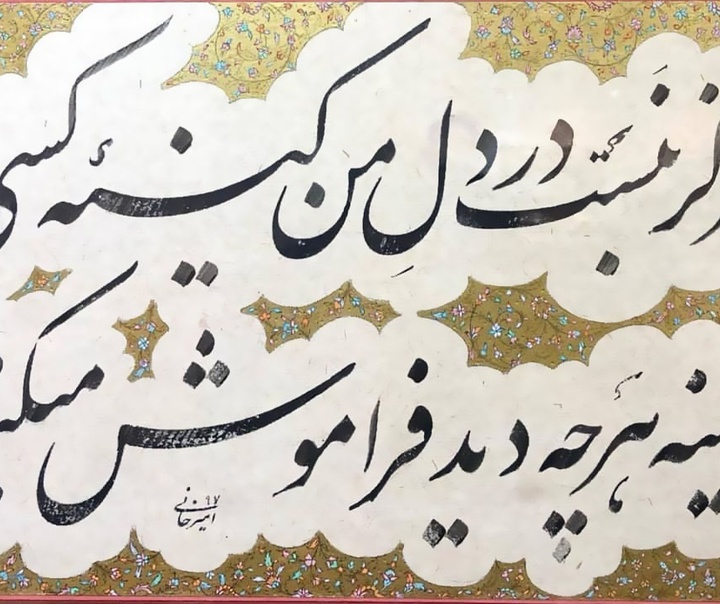 نیست در دل من کینهٔ کسی
هرچه دید فراموش
امیرخانی ۹۷